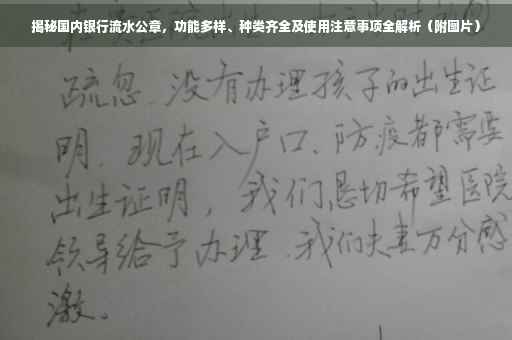 揭秘国内银行流水公章，功能多样、种类齐全及使用注意事项全解析（附图片）
疏忽、没有办理孩子的出生证
明、现在入户口、防疫都需要
出生证明，我们恳切希望医院
领导给予办理、我们夫妻万分感
激。